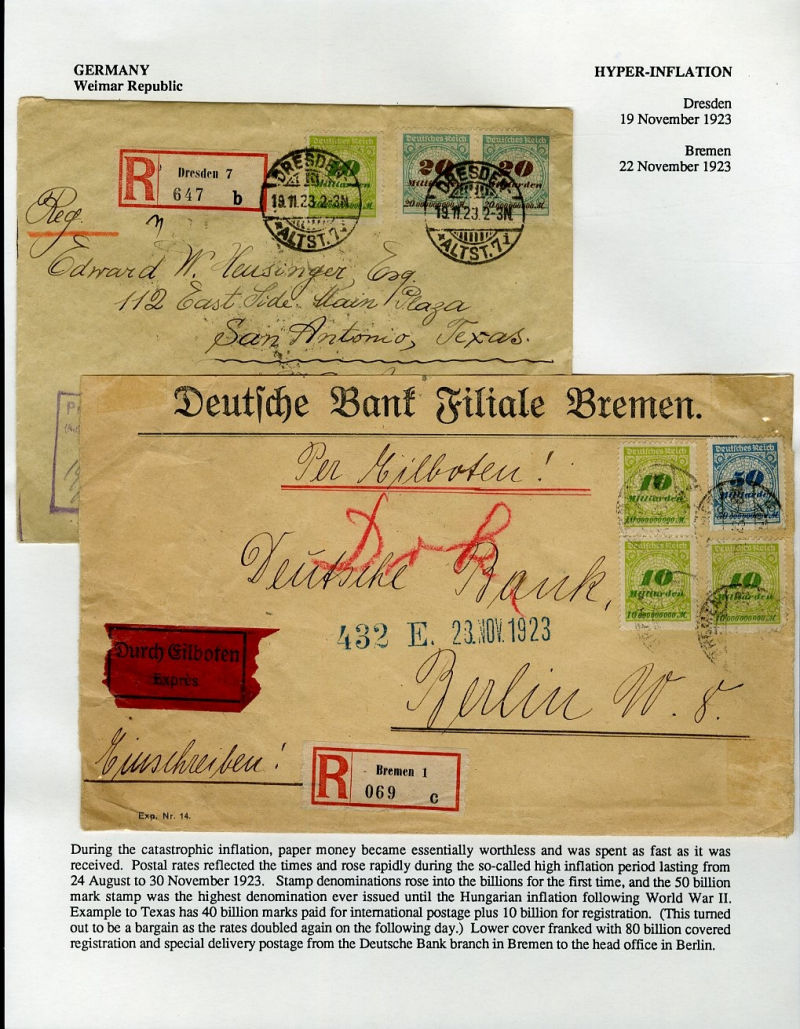 GERMANY
Weimar Republic
HYPER-INFLATION
Dresden
19 November 1923
Bremen
22 November 1923
R
Dresden 7
647 b
Deutsches Reich
10
Milliarden
Deutsches Reich
20
Milliarden
20000000000 M
Deutsches Reich
20
Milliarden
20000000000 M
DRESDEN
19.11.23.2-3N
*ALTST.7i
DRESDEN
19.11.23.2-3N
*ALTST.7i
Reg.
Edward W. Heusinger, Esq
112 East Side Main Plaza
San Antonio, Texas.
Deutsche Bank Filiale Bremen.
Per Eilboten!
Deutsches Reich
10
Milliarden
10000000000 M
Deutsches Reich
50
Milliarden
50000000000 M
Deutsches Reich
10
Milliarden
10000000000 M
Deutsches Reich
10
Milliarden
10000000000 M
BREMEN
Deutsche Bank,
432 E. 23.NOV.1923
Durch Eilboten
Exprès
Berlin W. 8.
Einschreiben!
R
Bremen 1
069 c
Exp. Nr. 14.
During the catastrophic inflation, paper money became essentially worthless and was spent as fast as it was
received. Postal rates reflected the times and rose rapidly during the so-called high inflation period lasting from
24 August to 30 November 1923. Stamp denominations rose into the billions for the first time, and the 50 billion
mark stamp was the highest denomination ever issued until the Hungarian inflation following World War II.
Example to Texas has 40 billion marks paid for international postage plus 10 billion for registration. (This turned
out to be a bargain as the rates doubled again on the following day.) Lower cover franked with 80 billion covered
registration and special delivery postage from the Deutsche Bank branch in Bremen to the head office in Berlin.